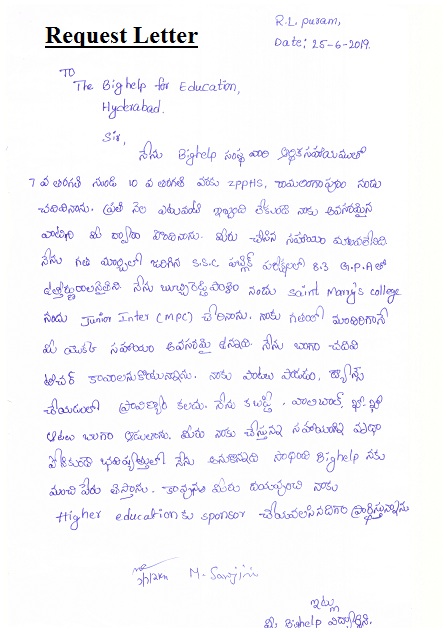 Request Letter
R.L. puram,
Date: 25-6-2019.
TO
The Bighelp for Education,
Hyderabad.
Sir,
నేను Bighelp సంస్థ వారి ఆర్థిక సహాయముతో
7 వ తరగతి నుండి 10 వ తరగతి వరకు ZPPHS, రామలింగాపురం నందు
చదివినాను. ప్రతి నెల ఎటువంటి ఇబ్బంది లేకుండ నాకు అవసరమైన
వాటిని మీ ద్వారా పొందినాను. మీరు చేసిన సహాయం మరువలేనిది.
నేను గత మార్చిలో జరిగిన S.S.C పబ్లిక్ పరీక్షలలో 8.3 G.P.A తో
ఉత్తీర్ణురాలనైతిని. నేను బుచ్చిరెడ్డిపాళెం నందు Saint Mary's college
నందు Junior Inter (MPC) చేరినాను. నాకు గతంలో మాదిరిగానే
మీ యొక్క సహాయం అవసరమై ఉన్నది. నేను బాగా చదివి
టీచర్ కావాలనుకొనుచున్నాను. నాకు పాటలు పాడడం, డ్యాన్సు
చేయడంలో ప్రావీణ్యం కలదు. నేను కబడ్డీ, వాలీబాల్, ఖో ఖో
ఆటలు బాగా ఆడుతాను. మీరు నాకు చేస్తున్న సహాయాన్ని వృథా
పోనీకుండా భవిష్యత్తులో నేను అనుకున్నది సాధించి Bighelp నకు
మంచి పేరు తెస్తాను. కావున మీరు దయవుంచి నాకు
Higher education కు sponsor చేయవలసినదిగా ప్రార్థిస్తున్నాను
M. Sarojini
ఇట్లు
మీ Bighelp విద్యార్థిని.